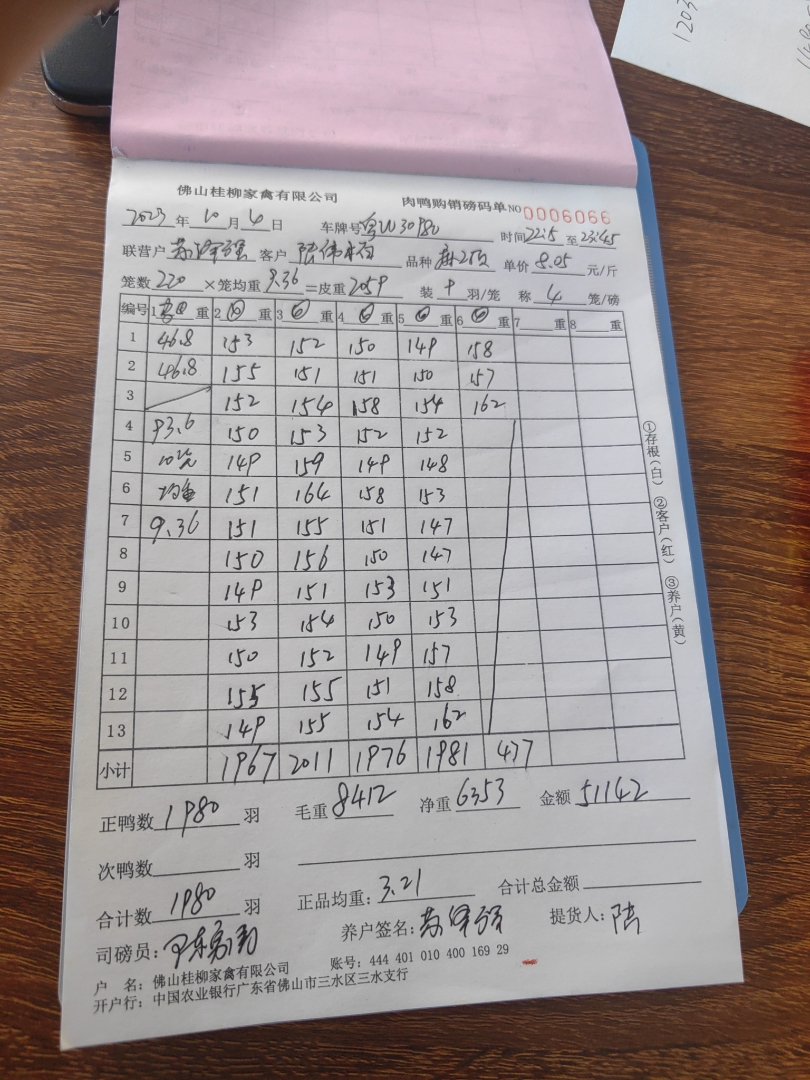 1203
佛山桂柳家禽有限公司 肉鸭购销磅码单 NO 0006066
2023年10月4日 车牌号粤W30P80 时间22:15至23:45
联营户 客户 陆伟 品种 单价8.05元/斤
笼数220×笼均重9.36=皮重2059 装 羽/笼 称4笼/磅
编号 1 重 2 重 3 重 4 重 5 重 6 重 7 重 8 重
1 46.8 153 152 150 149 158
2 46.8 155 151 151 150 157
3 152 154 158 154 162
4 93.6 150 153 152 152
5 10笼 149 159 149 148
6 均重 151 164 158 153
7 9.36 151 155 151 147
8 150 156 150 147
9 149 151 153 151
10 153 154 150 153
11 150 152 149 157
12 155 155 151 158
13 149 155 154 162
小计 1967 2011 1976 1981 477
①存根(白) ②客户(红) ③养户(黄)
正鸭数1980羽 毛重8412 净重6353 金额51142
次鸭数 羽
合计数1980羽 正品均重:3.21 合计总金额
司磅员: 养户签名: 提货人:陆
户 名:佛山桂柳家禽有限公司 账号:444 401 010 400 169 29
开户行:中国农业银行广东省佛山市三水区三水支行